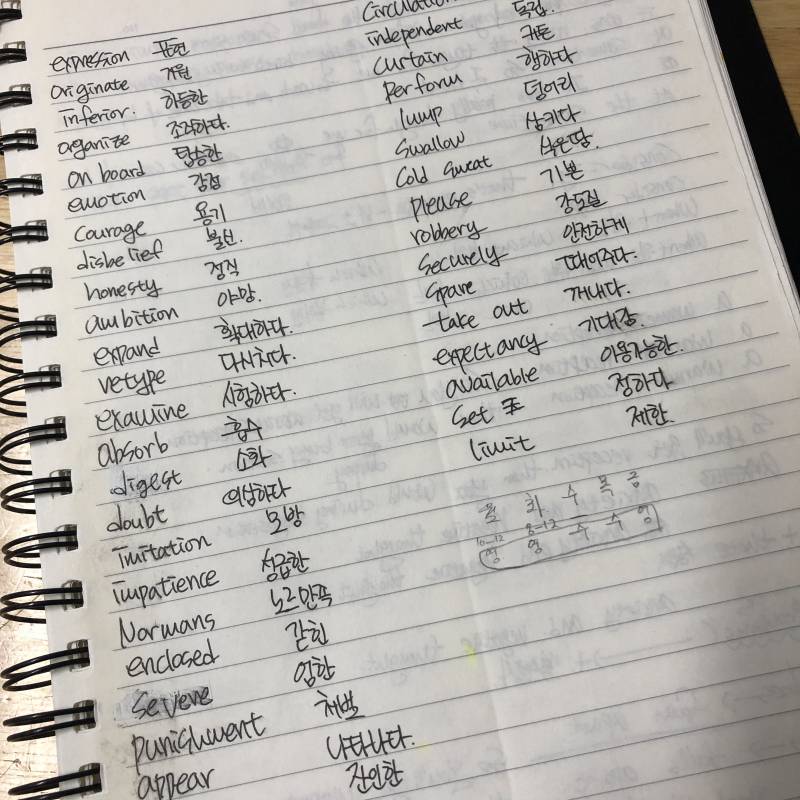 expression 표현
originate 기원
inferior. 하등한
organize 조직하다.
on board 탑승한
emotion 감정
courage 용기
disbelief 불신.
honesty 정직
ambition 야망.
expand 확대하다.
retype 다시치다.
examine 시험하다.
absorb 흡수
digest 소화
doubt 의심하다
imitation 모방
impatience 성급한
Normans 노르만족
enclosed 갇힌
severe 엄한
punishment 처벌
appear 나타나다.
잔인한
Circulation
independent 독립.
curtain 커튼
perform 행하다
lump 덩어리
swallow 삼키다
cold sweat 식은땀.
please 기본
robbery 강도질
securely 안전하게
spare 떼어주다.
take out 꺼내다.
expectancy 기대감.
available 이용가능한.
set 정하다
limit 제한.
월 화 수 목 금
10-12 8-12
영 영 수 수 영